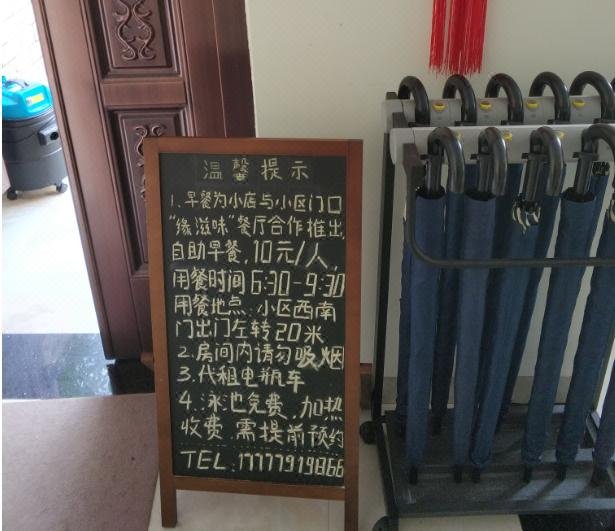 温馨提示
1.早餐为小店与小区门口
"缘滋味"餐厅合作推出,
自助早餐,10元/人,
用餐时间6:30-9:30
用餐地点:小区西南
门出门左转20米
2.房间内请勿吸烟
3.代租电瓶车
4.泳池免费,加热
收费.需提前预约
TEL:17777919866